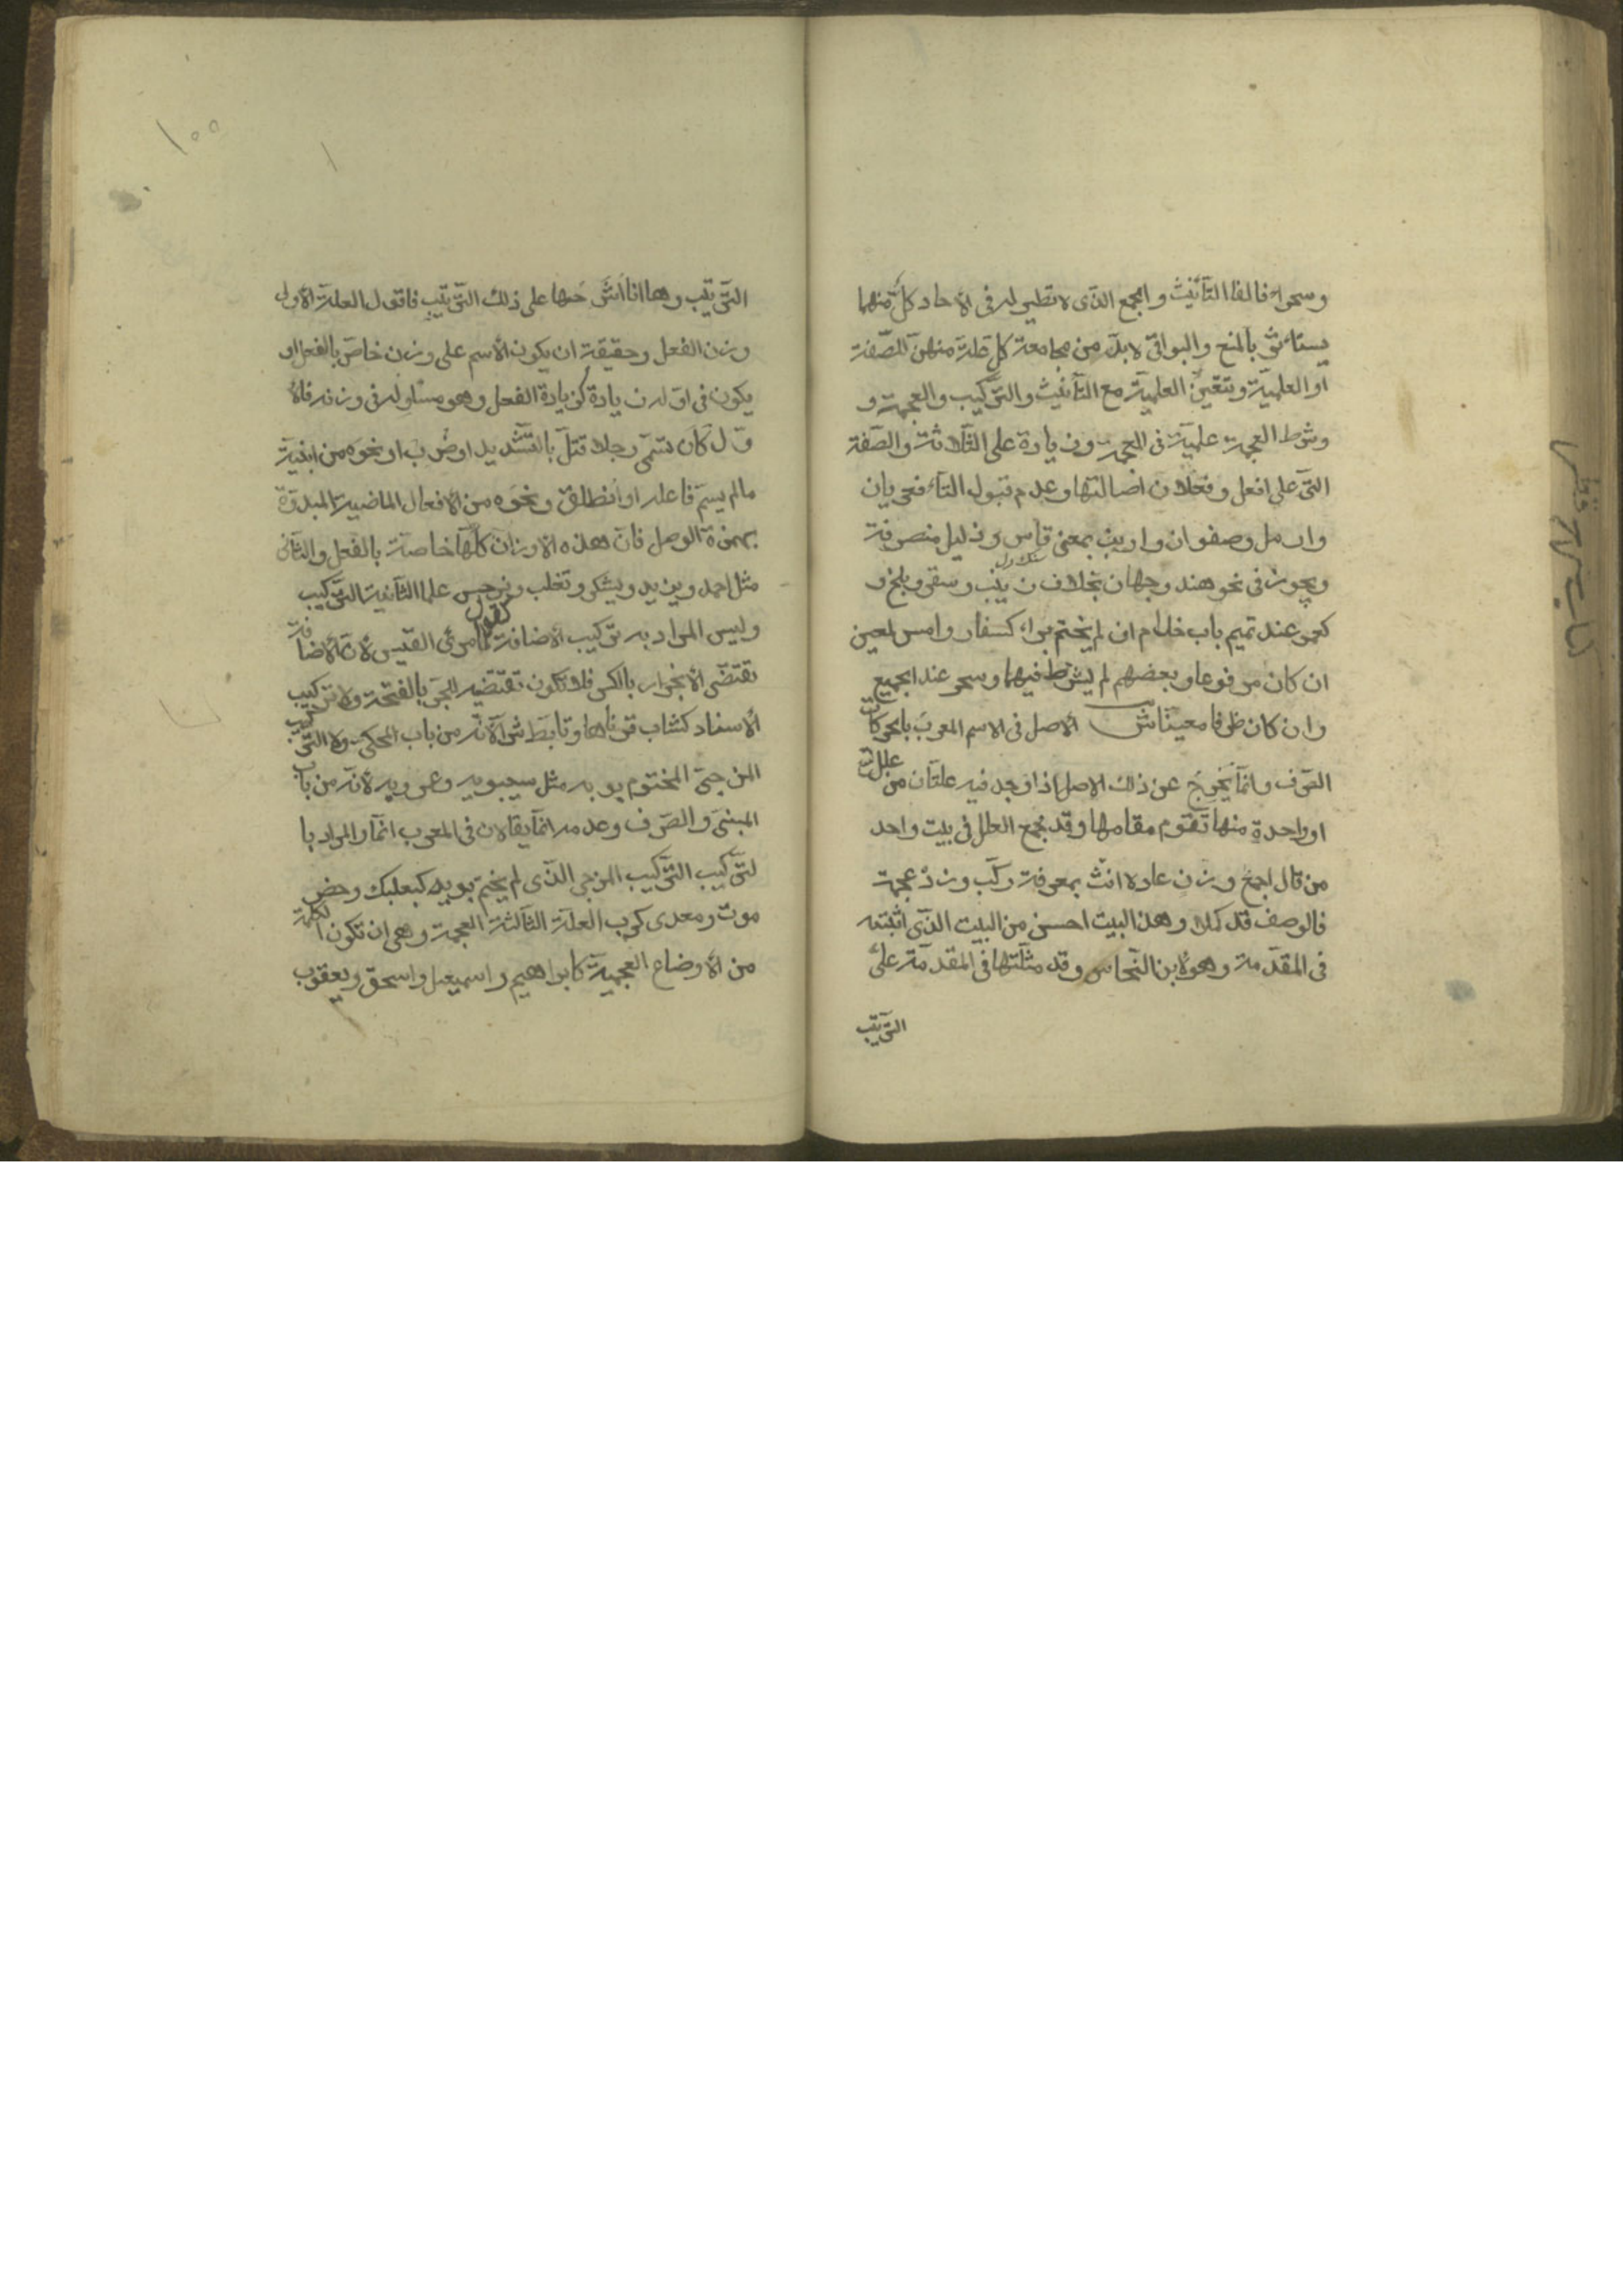 وسحراء فالفا التأنيث والجمع الذى لا نظير له فى الاحاد كل منهما
يستأثر بالمنع والبواقى لا بد من مجامعة كل علة منهن للصفة
او العلمية وتتعين العلمية مع التأنيث والتركيب والعجمة و
وشرط العجمة علمية فى العجمة وزيادة على الثلاثة والصفة
التى على افعل وفعلان اصالتها وعدم قبول التاء فعريان
وارمل وصفوان وارنب بمعنى قاس وذليل منصرفة
ويجوز فى نحو هند وجهان بخلاف زينب وسقر وبلخ و
كعمر عند تميم باب حذام ان لم يختم براء كسفار وامس لمعين
ان كان مرفوعا وبعضهم لم يشترط فيهما وسحر عند الجميع
وان كان ظرفا معينا ش الاصل فى الاسم المعرب بالحركات
الصرف وانما يخرج عن ذلك الاصل اذا وجد فيه علتان من علل
او واحدة منها تقوم مقامها وقد جمع العلل فى بيت واحد
من قال اجمع وزن عادلا انث بمعرفة ركب وزد عجمة
فالوصف قد كملا وهذا البيت احسن من البيت الذى اثبته
فى المقدمة وهو لابن النحاس وقد مثلتها فى المقدمة على
الترتيب
١٠٥
الترتيب وها انا اشرحها على ذلك الترتيب فاقول العلة الاولى
وزن الفعل وحقيقة ان يكون الاسم على وزن خاص بالفعل او
يكون فى اوله زيادة كزيادة الفعل وهو مساو له فى وزنه فالا
ول كان تسمى رجلا قتل بالتشديد او ضرب او نحوه من ابنية
مالم يسم فاعله او انطلق ونحوه من الافعال الماضية المبدوة
بهمزة الوصل فان هذه الاوزان كلها خاصة بالفعل والثانى
مثل احمد ويزيد ويشكر وتغلب ونرجس علما الثانية التركيب
وليس المراد به تركيب الاضافة كقولك امرئى القيس لان الاضافة
تقتضى الانجرار بالكسر فلا تكون تقتضيه الجر بالفتحة ولا تركيب
الاسناد كشاب قرناها وتأبط شرا لانه من باب المحكى ولا التركيب
المزجى المختوم بويه مثل سيبويه وعمرويه لانه من باب
المبنى والصرف وعدمه انما يقالان فى المعرب انما والمراد با
لتركيب التركيب المزجى الذى لم يختم بويه كبعلبك وحضر
موت ومعدى كرب العلة الثالثة العجمة وهى ان تكون الكلمة
من الاوضاع العجمية كابراهيم واسمعيل واسحق ويعقوب